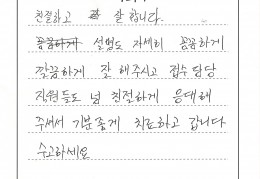 친절하고 잘 합니다.
설명도 자세히 꼼꼼하게
깔끔하게 잘 해주시고 접수 담당
직원들도 넘 친절하게 응대해
주셔서 기분좋게 치료하고 갑니다
수고하세요